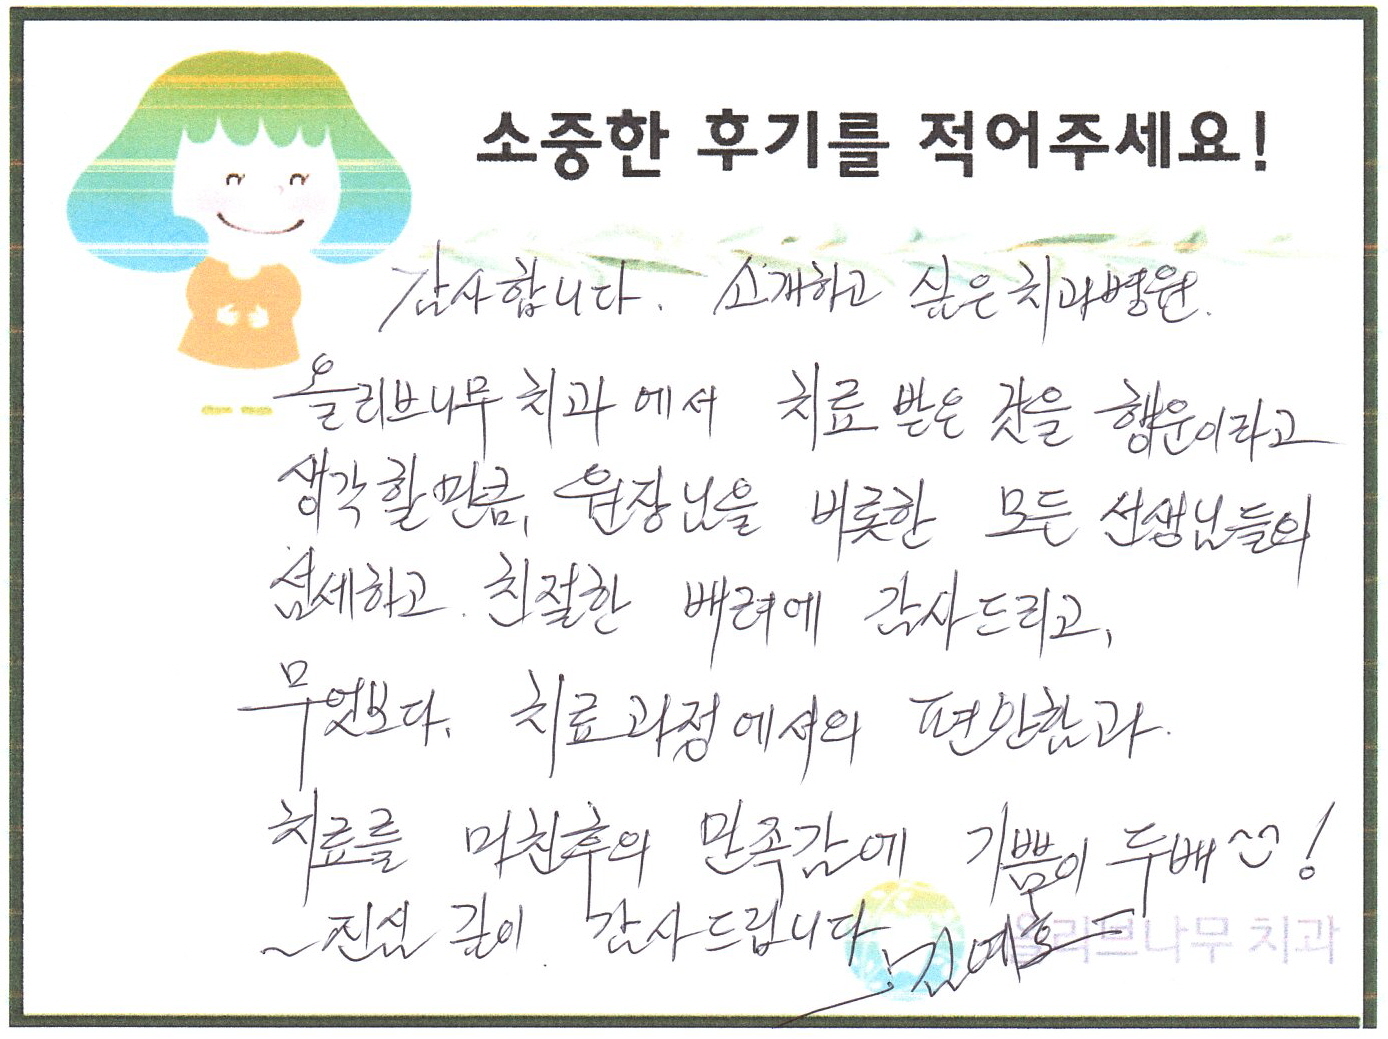 소중한 후기를 적어주세요!
감사합니다. 소개하고 싶은 치과병원.
올리브나무 치과에서 치료 받은 것을 행운이라고
생각할만큼, 원장님을 비롯한 모든 선생님들의
섬세하고 친절한 배려에 감사드리고,
무엇보다, 치료과정에서의 편안함과
치료를 마친후의 만족감에 기쁨이 두배^^!
~진심 깊이 감사드립니다
올리브나무 치과